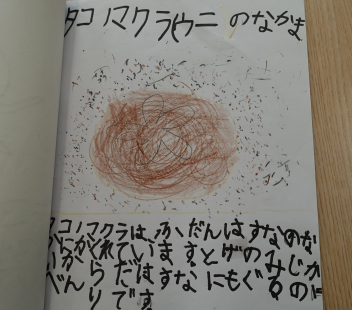 タコノマクラ(ウニ のなかま
タコノマクラは、ふだんはすなのな
かにかくれています とげのみじか
いからだはすなにもぐるのに
べんりです